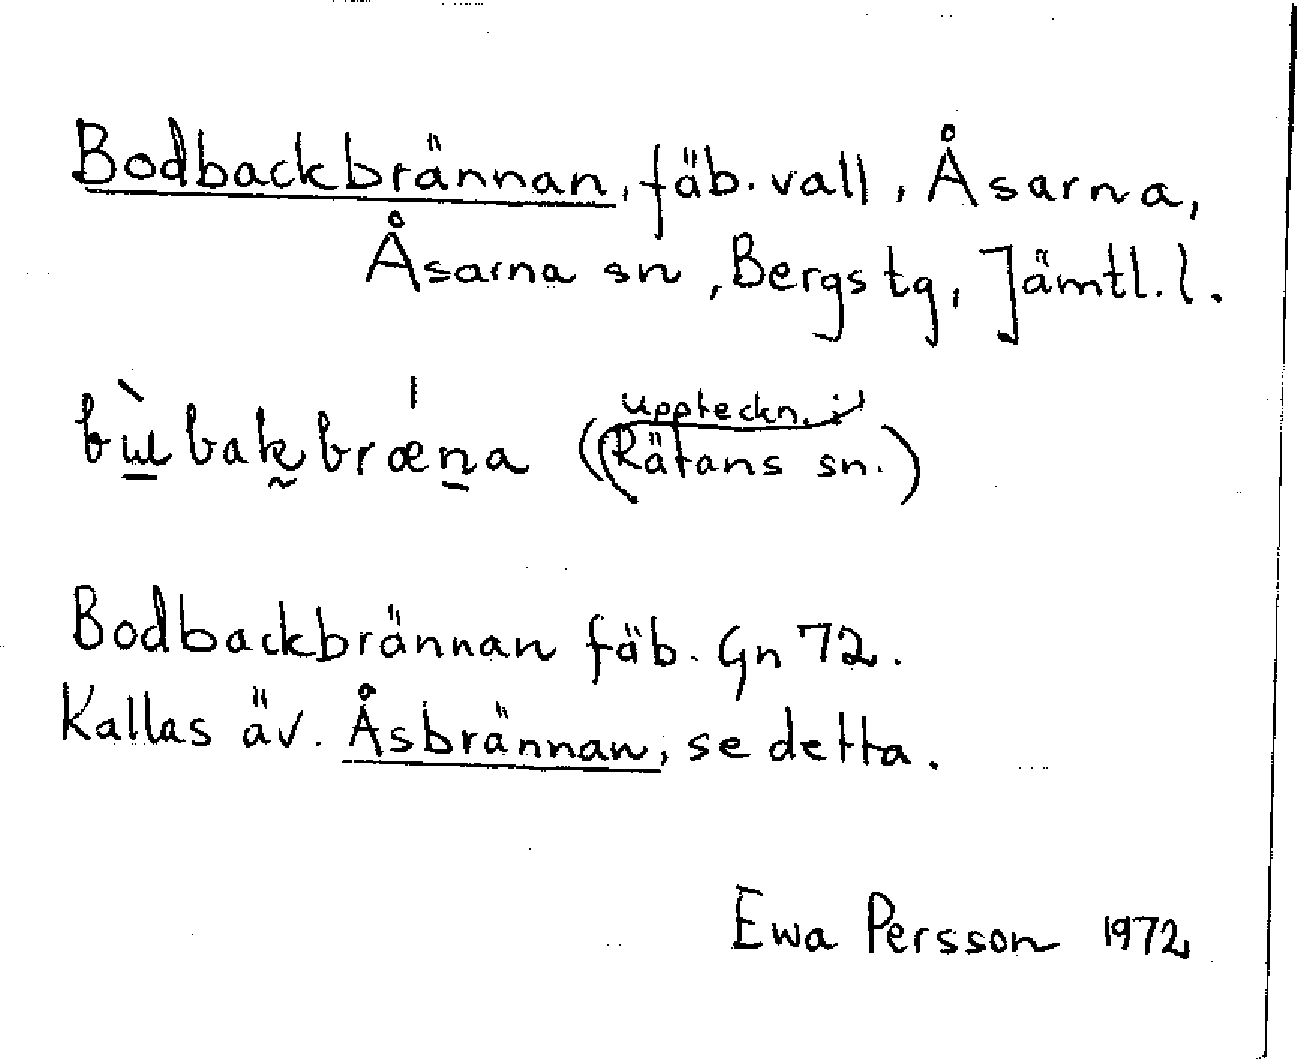 Bodbackbrännan, fäb. vall, Åsarna,
Åsarna sn, Bergs tg, Jämtl. l.
(uppteckn. i Rätans sn.)
Bodbackbrännan fäb. Gn 72.
Kallas äv. Åsbrännan, se detta.
Ewa Persson 1972